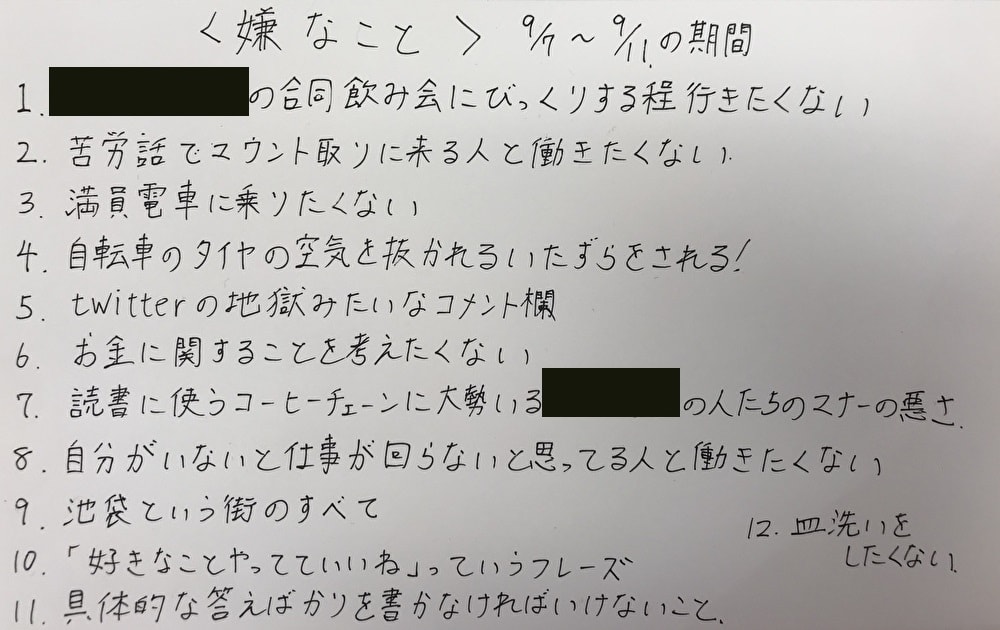 <嫌なこと> 9/7〜9/11.の期間
1. の合同飲み会にびっくりする程行きたくない
2. 苦労話でマウント取りに来る人と働きたくない.
3. 満員電車に乗りたくない
4. 自転車のタイヤの空気を抜かれるいたずらをされる!
5. twitterの地獄みたいなコメント欄
6. お金に関することを考えたくない
7. 読書に使うコーヒーチェーンに大勢いる の人たちのマナーの悪さ.
8. 自分がいないと仕事が回らないと思ってる人と働きたくない
9. 池袋という街のすべて
10. 「好きなことやってていいね」っていうフレーズ
11. 具体的な答えばかりを書かなければいけないこと.
12. 皿洗いを
したくない.